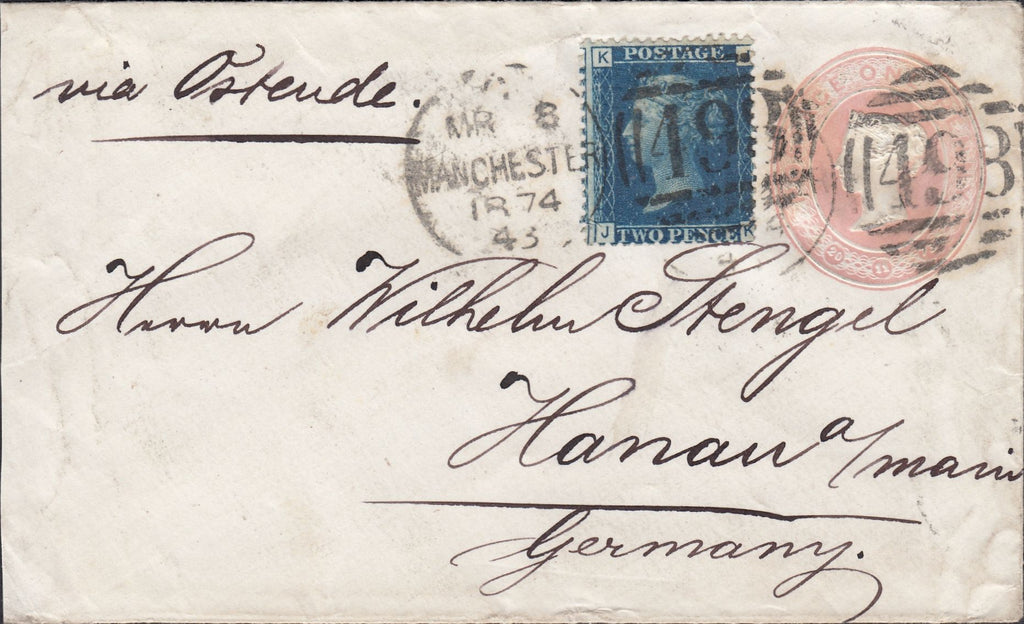 via Ostende.
K
POSTAGE
MR 8
MANCHESTER
74
43
498
498
J TWO PENCE K
Herrn Wilhelm Stengel
Hanau a/main
Germany.